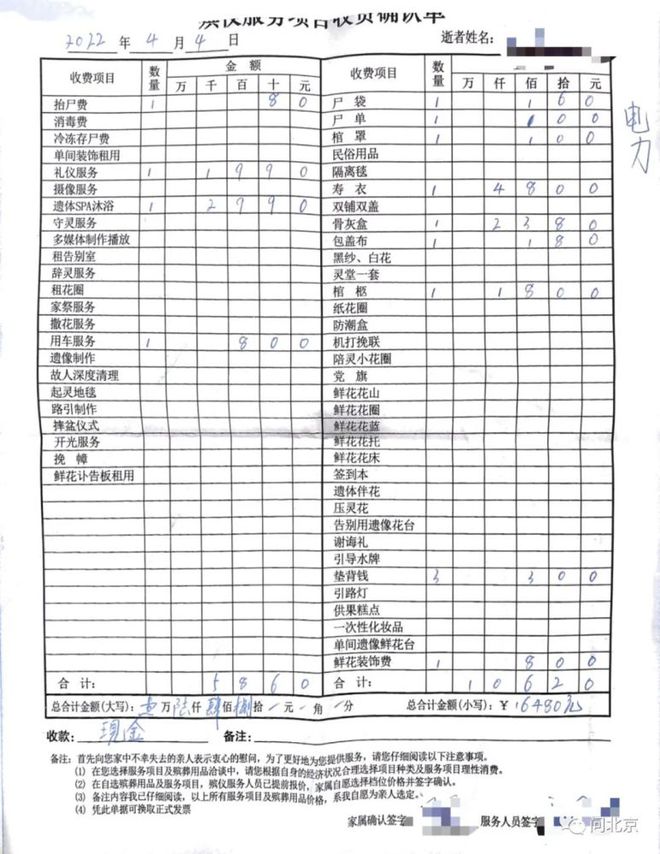 殡仪服务项目收费确认单
2022 年 4 月 4 日 逝者姓名:
电力
收费项目 数量 金额 万 千 百 十 元
抬尸费 1 8 0
消毒费
冷冻存尸费
单间装饰租用
礼仪服务 1 1 9 9 0
摄像服务
遗体SPA沐浴 1 2 9 9 0
守灵服务
多媒体制作播放
租告别室
辞灵服务
租花圈
家祭服务
撒花服务
用车服务 1 8 0 0
遗像制作
故人深度清理
起灵地毯
路引制作
摔盆仪式
开光服务
挽 幛
鲜花讣告板租用
合 计: 5 8 6 0
收费项目 数量 万 仟 佰 拾 元
尸 袋 1 1 6 0
尸 单 1 1 0 0
棺 罩 1 1 0 0
民俗用品
隔离毯
寿 衣 1 4 8 0 0
双铺双盖
骨灰盒 1 2 3 8 0
包盖布 1 1 8 0
黑纱、白花
灵堂一套
棺 柩 1 1 8 0 0
纸花圈
防潮盒
机打挽联
陪灵小花圈
党 旗
鲜花花山
鲜花花圈
鲜花花蓝
鲜花花托
鲜花花床
签到本
遗体伴花
压灵花
告别用遗像花台
谢诲礼
引导水牌
垫背钱 3 3 0 0
引路灯
供果糕点
一次性化妆品
单间遗像鲜花台
鲜花装饰费 1 8 0 0
合 计: 1 0 6 2 0
总合计金额(大写): 壹 万 陆 仟 肆 佰 捌 拾 / 元 一 角 / 分 总合计金额(小写): ¥ 16480元
收款: 现金 备注:
备注: 首先向您家中不幸失去的亲人表示衷心的慰问, 为了更好地为您提供服务, 请您仔细阅读以下注意事项。
(1) 在您选择服务项目及殡葬用品洽谈中, 请您根据自身的经济状况合理选择项目种类及服务项目理性消费。
(2) 在自选殡葬用品及服务项目, 殡仪服务人员已提前报价, 家属自愿选择档位价格并签字确认。
(3) 备注内容我已仔细阅读, 以上所有服务项目及殡葬用品价格, 系我自愿为亲人选定。
(4) 凭此单据可换取正式发票
家属确认签字 服务人员签字
问北京